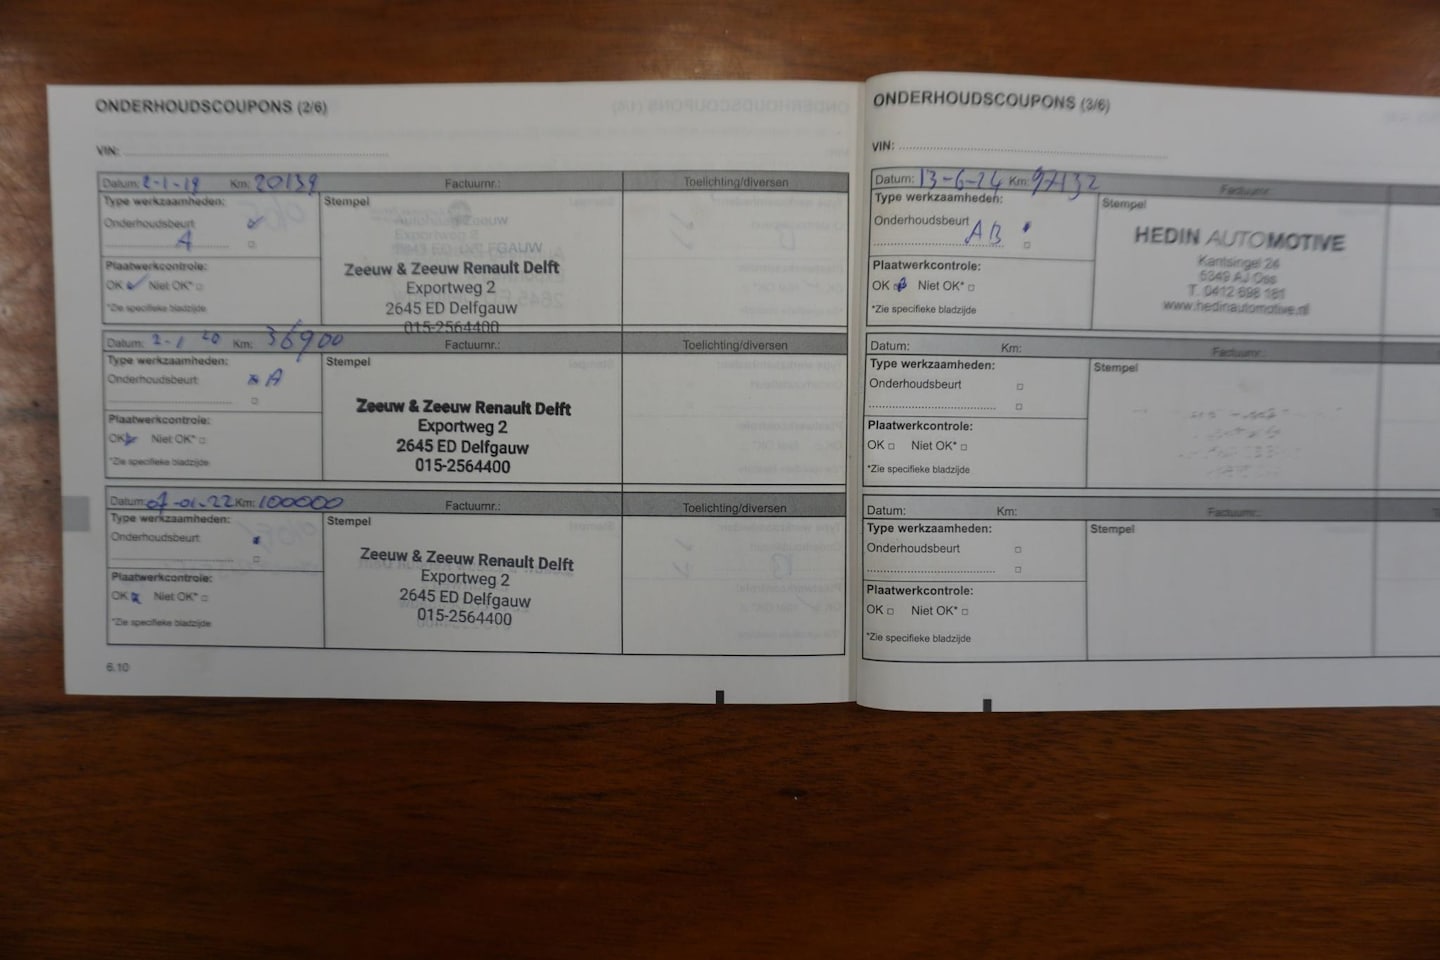 ONDERHOUDSCOUPONS (2/6)
VIN:
Datum: 2-1-19 Km: 20139 Factuurnr.: Toelichting/diversen
Type werkzaamheden: Stempel
Onderhoudsbeurt
A
Plaatwerkcontrole:
OK Niet OK*
*Zie specifieke bladzijde
Zeeuw
Exportweg 2
Zeeuw & Zeeuw Renault Delft
Exportweg 2
2645 ED Delfgauw
015-2564400
Datum: 2-1 20 Km: 36900 Factuurnr.: Toelichting/diversen
Type werkzaamheden: Stempel
Onderhoudsbeurt A
Plaatwerkcontrole:
OK Niet OK*
*Zie specifieke bladzijde
Zeeuw & Zeeuw Renault Delft
Exportweg 2
2645 ED Delfgauw
015-2564400
Datum: 07-01-22 Km: 100000 Factuurnr.: Toelichting/diversen
Type werkzaamheden: Stempel
Onderhoudsbeurt
Plaatwerkcontrole:
OK Niet OK*
*Zie specifieke bladzijde
Zeeuw & Zeeuw Renault Delft
Exportweg 2
2645 ED Delfgauw
015-2564400
6.10
ONDERHOUDSCOUPONS (3/6)
VIN:
Datum: 13-6-24 Km: 97132 Factuurnr.:
Type werkzaamheden: Stempel
Onderhoudsbeurt
AB
Plaatwerkcontrole:
OK Niet OK*
*Zie specifieke bladzijde
HEDIN AUTOMOTIVE
Kantsingel 24
5349 AJ Oss
T. 0412 698 181
www.hedinautomotive.nl
Datum: Km: Factuurnr.:
Type werkzaamheden: Stempel
Onderhoudsbeurt
Plaatwerkcontrole:
OK Niet OK*
*Zie specifieke bladzijde
Datum: Km: Factuurnr.:
Type werkzaamheden: Stempel
Onderhoudsbeurt
Plaatwerkcontrole:
OK Niet OK*
*Zie specifieke bladzijde